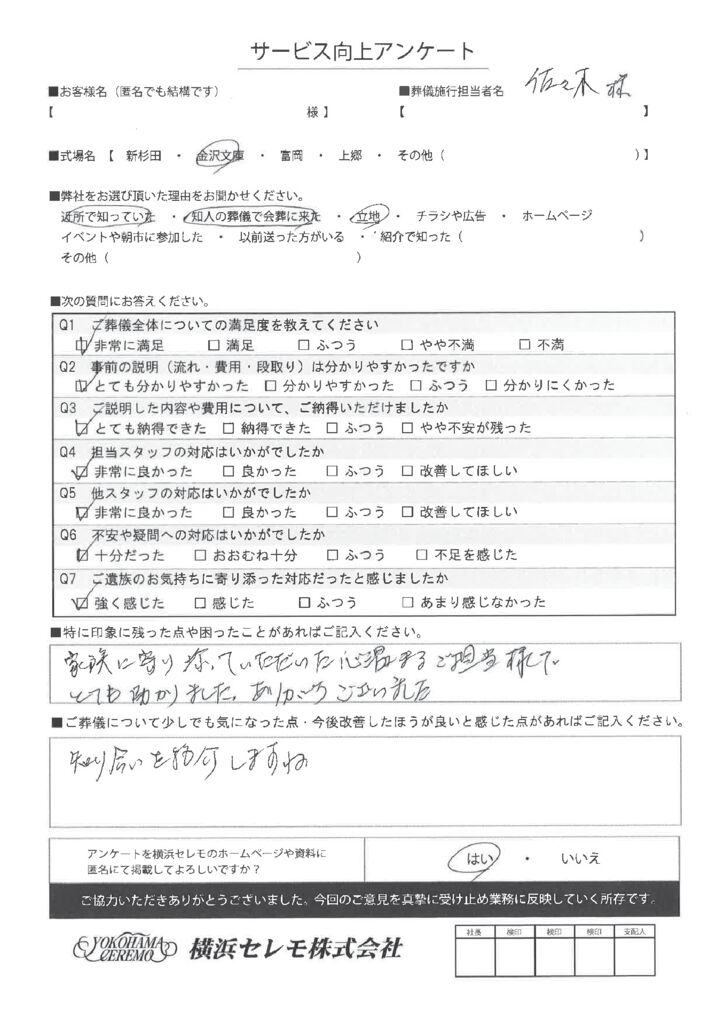 サービス向上アンケート
■お客様名（匿名でも結構です） ■葬儀施行担当者名 佐々木 様
【 様】 【 】
■式場名【 新杉田 ・ 金沢文庫 ・ 富岡 ・ 上郷 ・ その他（ ）】
■弊社をお選び頂いた理由をお聞かせください。
近所で知っていた ・ 知人の葬儀で会葬に来た ・ 立地 ・ チラシや広告 ・ ホームページ
イベントや朝市に参加した ・ 以前送った方がいる ・ 紹介で知った（ ）
その他（ ）
■次の質問にお答えください。
Q1 ご葬儀全体についての満足度を教えてください
☑非常に満足 □ 満足 □ ふつう □ やや不満 □ 不満
Q2 事前の説明（流れ・費用・段取り）は分かりやすかったですか
☑とても分かりやすかった □ 分かりやすかった □ ふつう □ 分かりにくかった
Q3 ご説明した内容や費用について、ご納得いただけましたか
☑とても納得できた □ 納得できた □ ふつう □ やや不安が残った
Q4 担当スタッフの対応はいかがでしたか
☑非常に良かった □ 良かった □ ふつう □ 改善してほしい
Q5 他スタッフの対応はいかがでしたか
☑非常に良かった □ 良かった □ ふつう □ 改善してほしい
Q6 不安や疑問への対応はいかがでしたか
☑十分だった □ おおむね十分 □ ふつう □ 不足を感じた
Q7 ご遺族のお気持ちに寄り添った対応だったと感じましたか
☑強く感じた □ 感じた □ ふつう □ あまり感じなかった
■特に印象に残った点や困ったことがあればご記入ください。
家族に寄り添っていただいた心温まるご担当様で
とても助かりました。ありがとうございました
■ご葬儀について少しでも気になった点・今後改善したほうが良いと感じた点があればご記入ください。
知り合いを紹介しますね
アンケートを横浜セレモのホームページや資料に
匿名にて掲載してよろしいですか？ はい ・ いいえ
ご協力いただきありがとうございました。今回のご意見を真摯に受け止め業務に反映していく所存です。
YOKOHAMA CEREMO 横浜セレモ株式会社
社長 検印 検印 検印 支配人